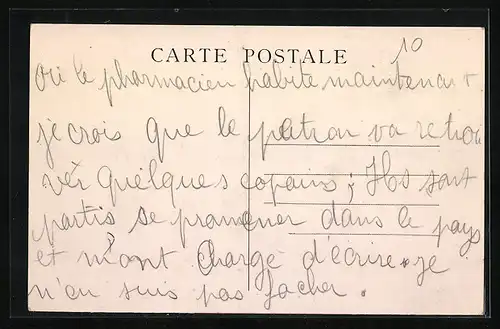 10
CARTE POSTALE
où le pharmacien habite maintenant.
je crois que le patron va retrou
ver quelques copains ; Ils sont
partis se promener dans le pays
et m'ont chargé d'écrire. je
n'en suis pas faché.